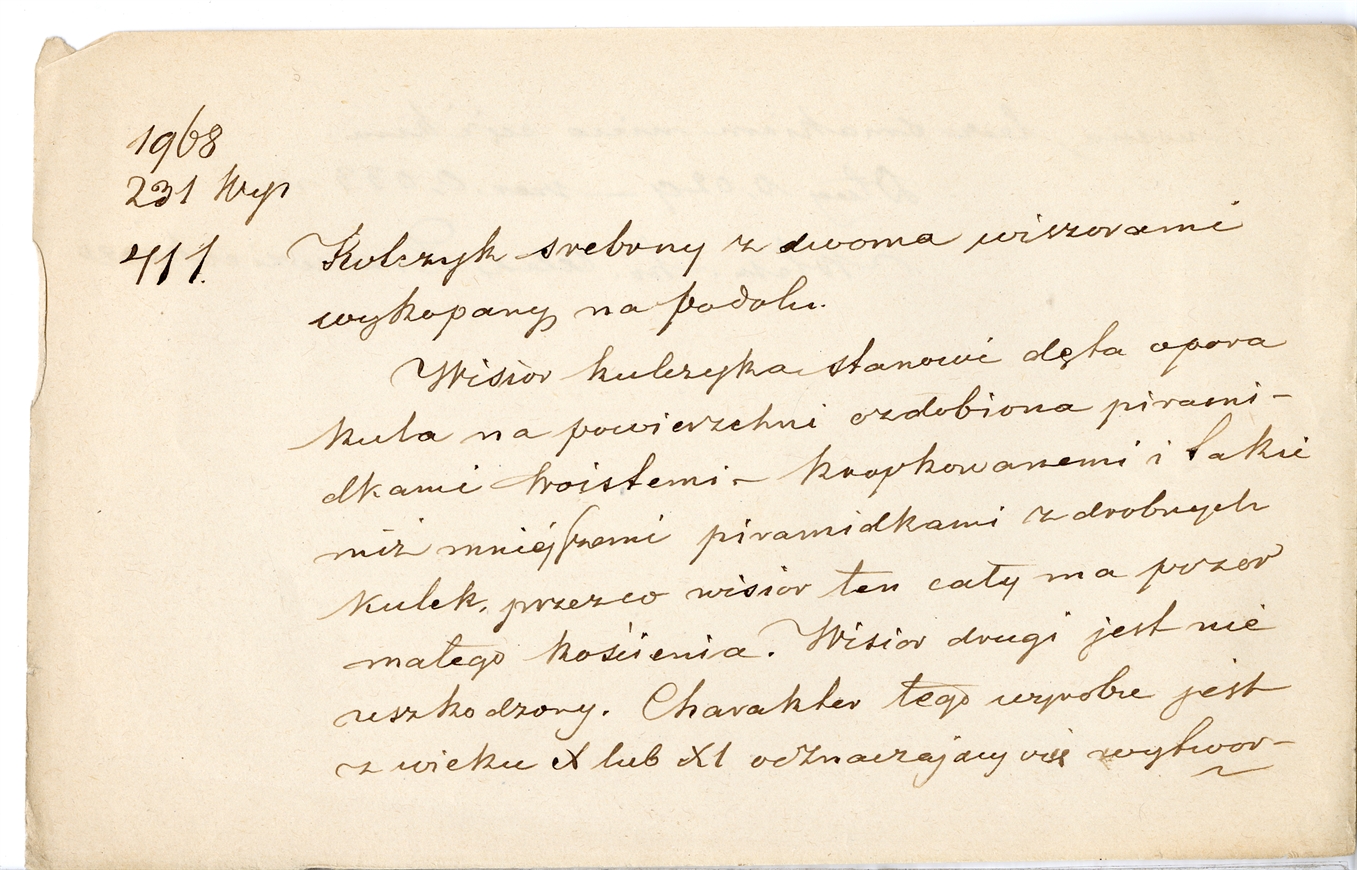 1968
231 Wyp
411.
Kolczyk srebrny z dwoma wiszorami
wykopany na podolu.
Wisior kulczyka stanowi dęta spora
kula na powierzchni ozdobiona pirami-
dkami troistemi – kropkowanemi i takie
miż mniejszemi piramidkami z drobnych
kulek, przezco wisior ten cały ma pozor
małego kościenia. Wisior drugi jest nie
uszkodzony. Charakter tego wyrobu jest
z wieku X lub XI odznaczający się wytwor-